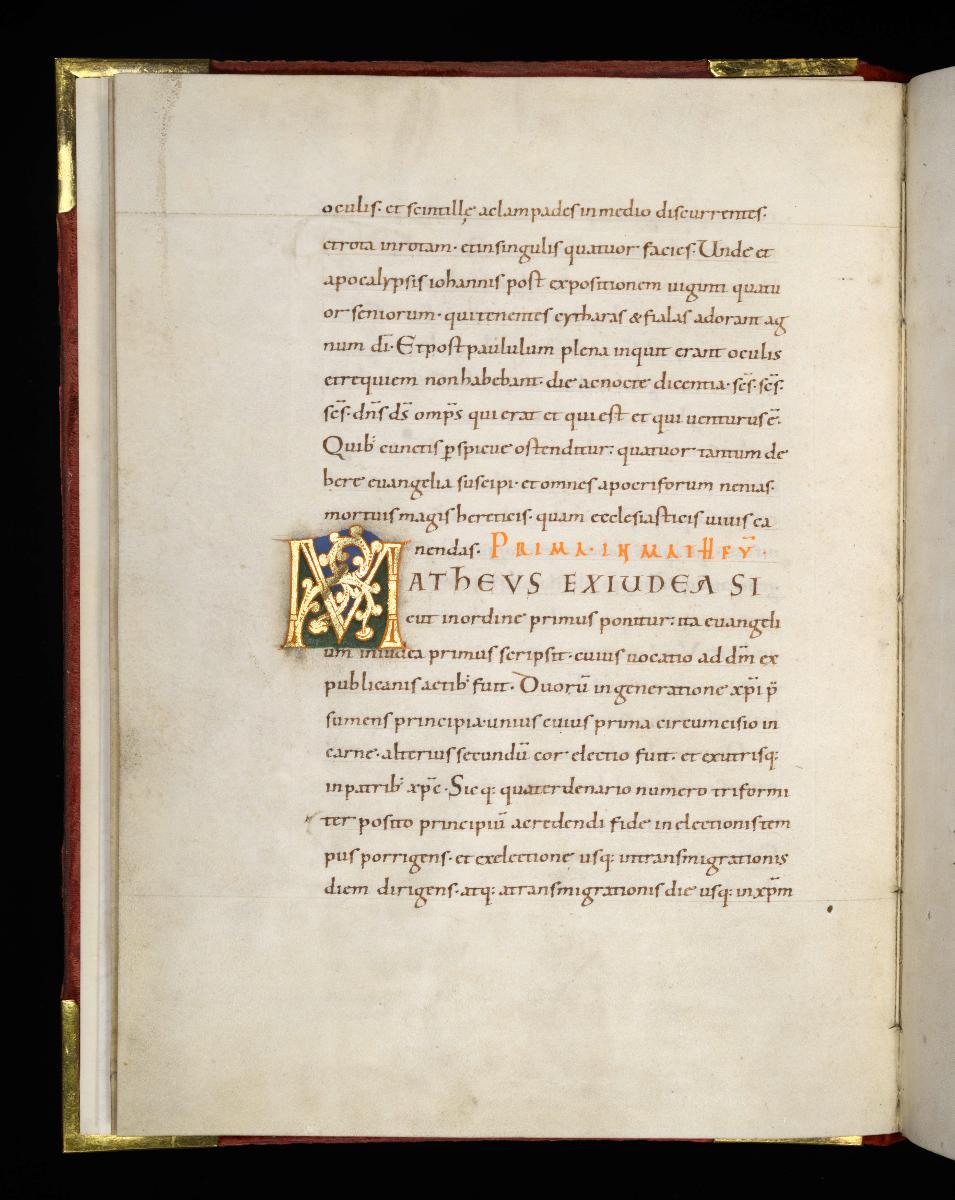 oculis· et scintillę ac lampades in medio discurrentes·
et rota in rotam· et in singulis quatuor facies· Unde et
apocalypsis iohannis post expositionem uiginti quatu
or seniorum· qui tenentes cytharas & fialas adorant ag
num dī· Et post paululum plena inquit erant oculis
et requiem non habebant· die ac nocte dicentia· sc̄s· sc̄s·
sc̄s· dn̄s ds̄ omp̄s qui erat et qui est et qui uenturus ē·
Quib; cunctis ꝑspicue ostenditur: quatuor tantum de
bere euangelia suscipi· et omnes apocriforum nenias·
mortuis magis hereticis· quam ecclesiasticis uiuis ca
nendas· PRIMA· IN MATHEŪ·
MATHEVS EX IUDEA SI
cut in ordine primus ponitur: ita euangeli
um in iudea primus scripsit· cuius uocatio ad dm̄ ex
publicanis actib; fuit· Duorū in generatione xp̄i p̄
sumens principia· unius cuius prima circumcisio in
carne· alterius secundū cor electio fuit· et ex utrisq:
in patrib; xp̄c· Sicq: quaterdenario numero triformi
ter posito principiū a credendi fide in electionis tem
pus porrigens· et ex electione usq: in transmigrationis
diem dirigens· atq: a transmigrationis die usq: in xp̄m